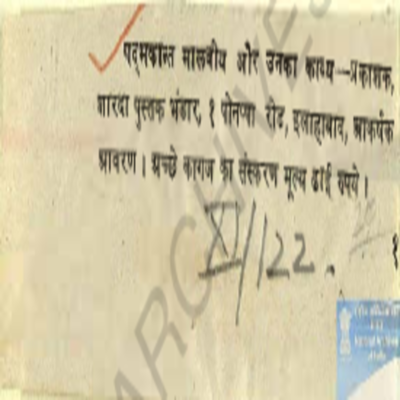 पद्मकान्त मालवीय और उनका काव्य—प्रकाशक,
शारदा पुस्तक भंडार, १ पोनप्पा रोड, इलाहाबाद, आकर्षक
आवरण। अच्छे कागज का संस्करण मूल्य ढाई रुपये।
XI/122.
१
ARCHIVES